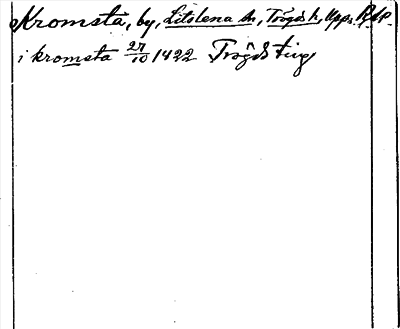 Kromsta, by, Litslena sn, Trögds h, Upps.
i kromsta 27/10 1422 Trögds ting